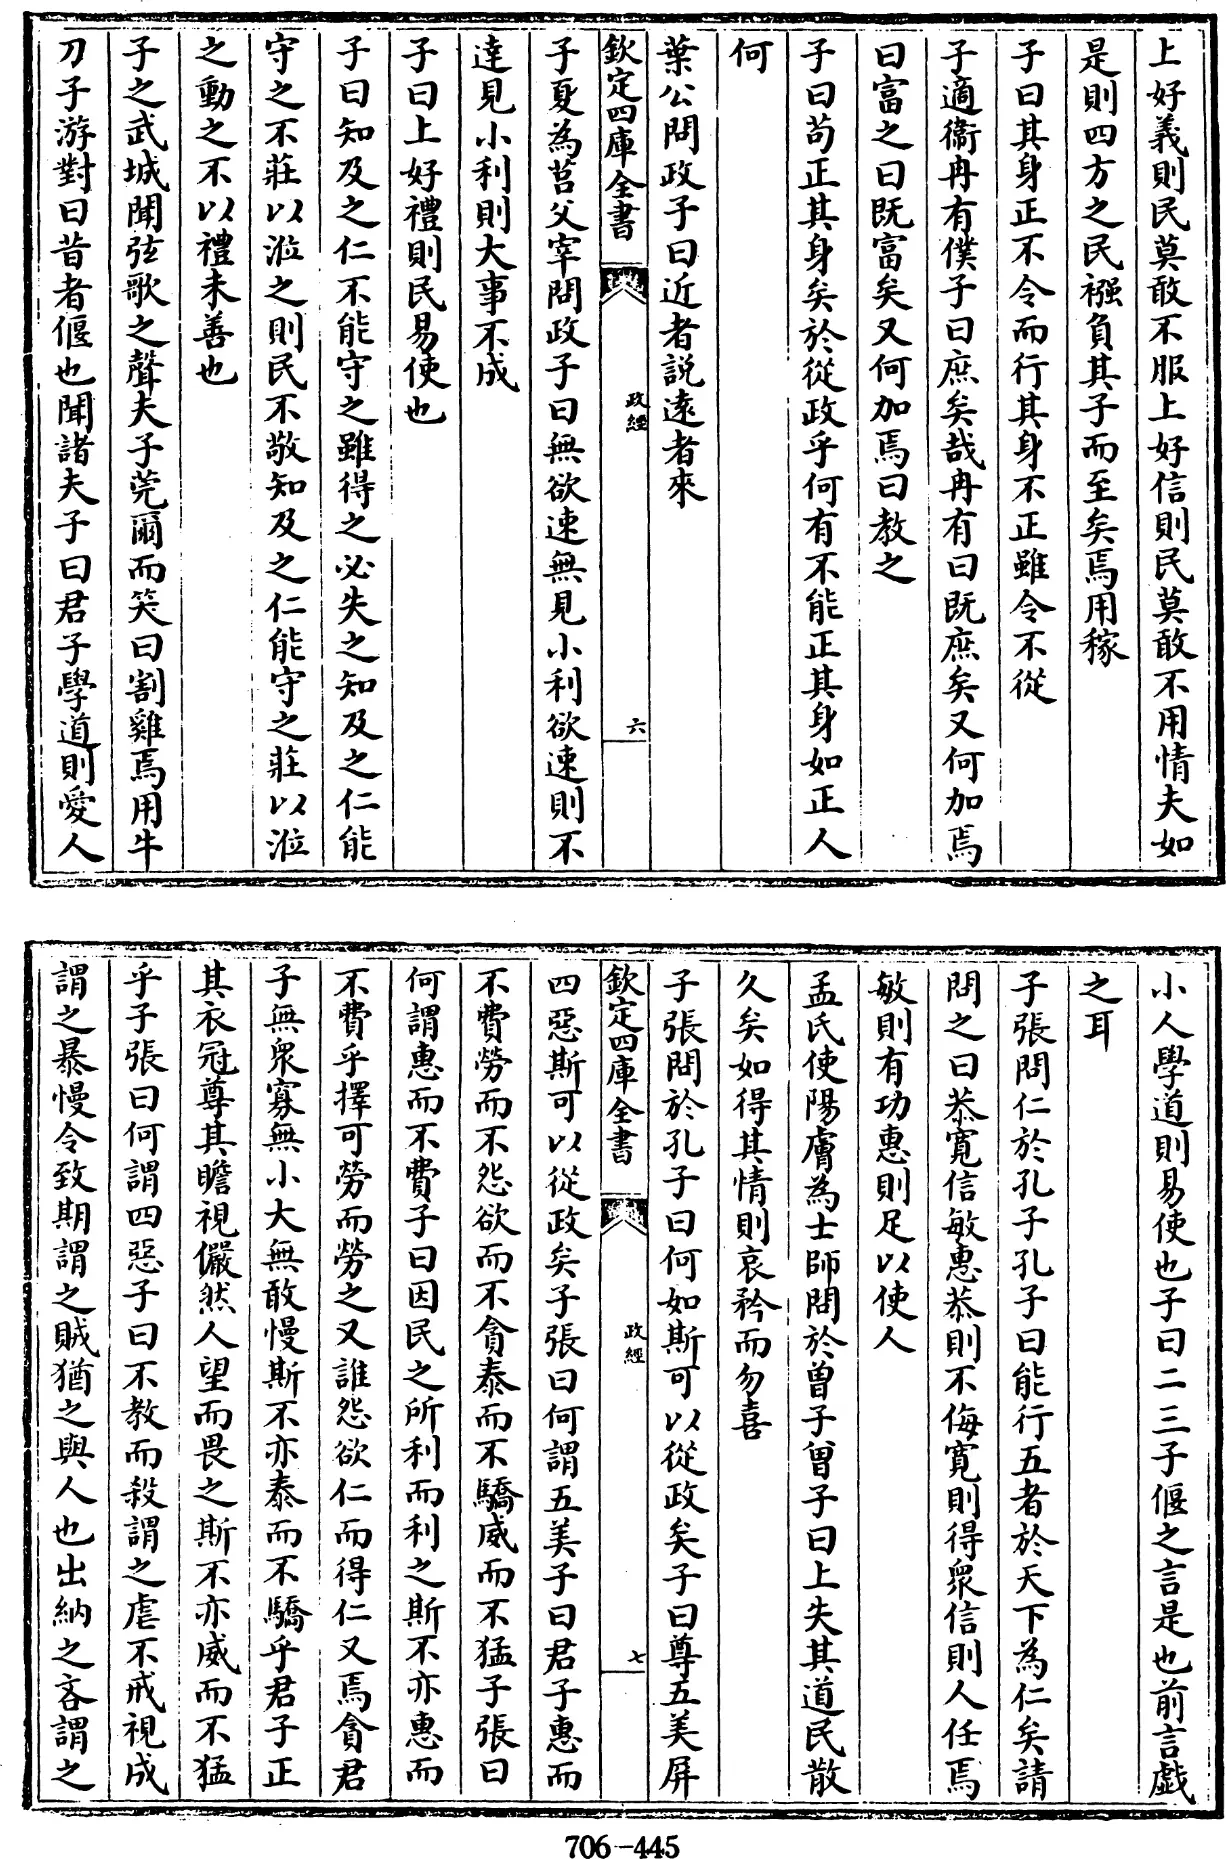 上好義則民莫敢不服上好信則民莫敢不用情夫如
是則四方之民襁負其子而至矣焉用稼
子曰其身正不令而行其身不正雖令不從
子適衞冉有僕子曰庶矣哉冉有曰既庶矣又何加焉
曰富之曰既富矣又何加焉曰教之
子曰苟正其身矣於從政乎何有不能正其身如正人
何
葉公問政子曰近者説遠者來
欽定四庫全書
政經
六
子夏為莒父宰問政子曰無欲速無見小利欲速則不
達見小利則大事不成
子曰上好禮則民易使也
子曰知及之仁不能守之雖得之必失之知及之仁能
守之不莊以涖之則民不敬知及之仁能守之莊以涖
之動之不以禮未善也
子之武城聞弦歌之聲夫子莞爾而笑曰割雞焉用牛
刀子游對曰昔者偃也聞諸夫子曰君子學道則愛人
小人學道則易使也子曰二三子偃之言是也前言戯
之耳
子張問仁於孔子孔子曰能行五者於天下為仁矣請
問之曰恭寛信敏惠恭則不侮寛則得衆信則人任焉
敏則有功惠則足以使人
孟氏使陽膚為士師問於曾子曾子曰上失其道民散
久矣如得其情則哀矜而勿喜
子張問於孔子曰何如斯可以從政矣子曰尊五美屏
欽定四庫全書
政經
七
四惡斯可以從政矣子張曰何謂五美子曰君子惠而
不費勞而不怨欲而不貪泰而不驕威而不猛子張曰
何謂惠而不費子曰因民之所利而利之斯不亦惠而
不費乎擇可勞而勞之又誰怨欲仁而得仁又焉貪君
子無衆寡無小大無敢慢斯不亦泰而不驕乎君子正
其衣冠尊其瞻視儼然人望而畏之斯不亦威而不猛
乎子張曰何謂四惡子曰不教而殺謂之虐不戒視成
謂之暴慢令致期謂之賊猶之與人也出納之吝謂之
706-445